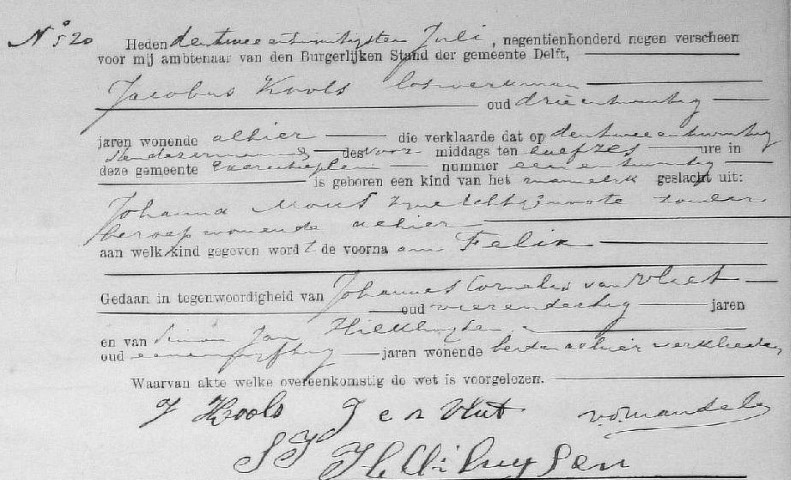 No 520 Heden den twee en twintigsten Juli, negentienhonderd negen verscheen
voor mij ambtenaar van den Burgerlijken Stand der gemeente Delft,
Jacobus Kools loswerkman
oud drieentwintig
jaren wonende alhier die verklaarde dat op den twee en twintig
sten dezer maand des voor middags ten half zes ure in
deze gemeente nummer een en twintig
is geboren een kind van het mannelijk geslacht uit:
Johanna Mous zijne echtgenoote zonder
beroep wonende alhier
aan welk kind gegeven wordt de voorna am Felix
Gedaan in tegenwoordigheid van Johannes Cornelis van Vliet
oud vierendertig jaren
en van Simon Jan
oud eenenvijftig jaren wonende beiden alhier
Waarvan akte welke overeenkomstig de wet is voorgelezen.
J Kools J C v Vliet
S J